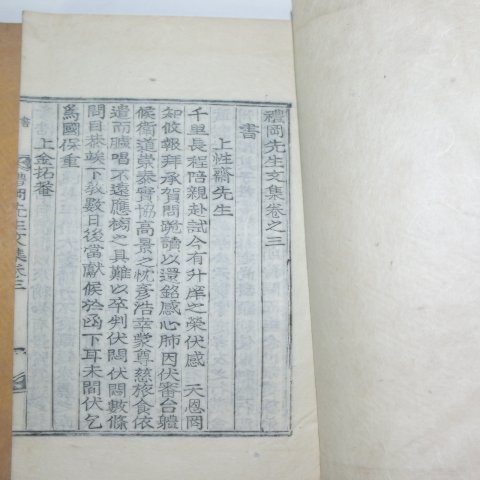 禮岡先生文集卷之三
書
上性齋先生
千里長程陪親赴試今有升庠之榮伏感 天恩罔
知攸報拜承賀問跪讀以還銘感心肺因伏審台體
候衛道崇泰實協高景之忱彦浩幸蒙尊慈旅食依
遣而臚唱不遠應榜之具難以卒判伏悶伏悶數條
問目恭竢下敎數日後當獻候於函下耳未間伏乞
爲國保重
上金拓菴
禮岡先生文集卷三
書